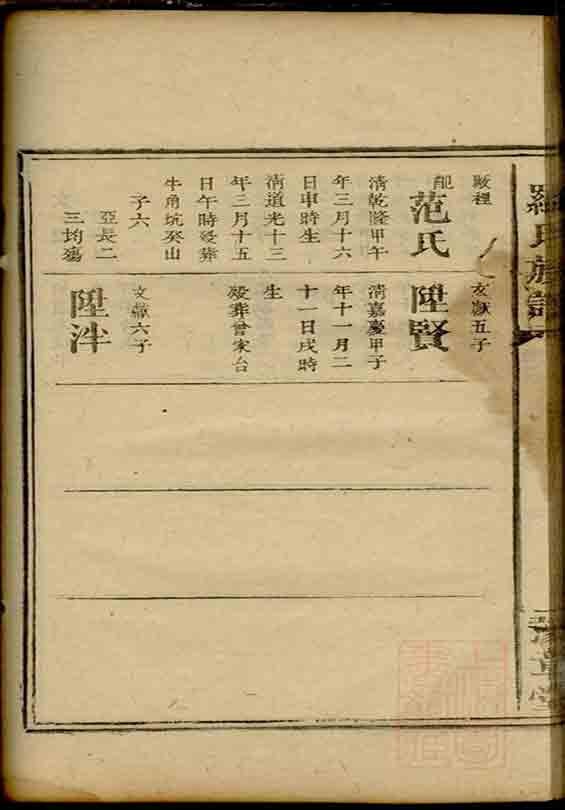 羅氏族譜
豫章堂
嶔裡
配范氏
清乾隆甲午
年三月十六
日申時生
清道光十三
年三月十五
日午時歿葬
牛角坑癸山
子六
亞長二
三均殤
文獻五子
陞賢
清嘉慶甲子
年十一月二
十一日戌時
生
歿葬曾家台
文獻六子
陞泮